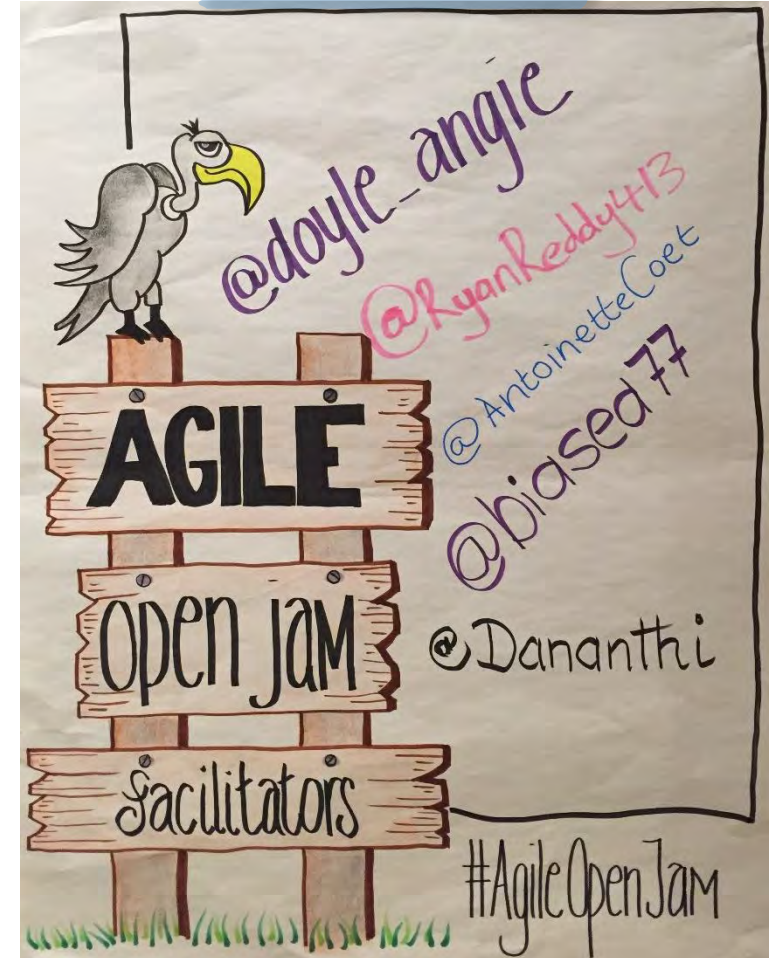 @doyle_angie
@RyanReddy413
@AntoinetteCoet
@biased77
@Dananthi
AGILE
open jam
facilitators
#AgileOpenJam